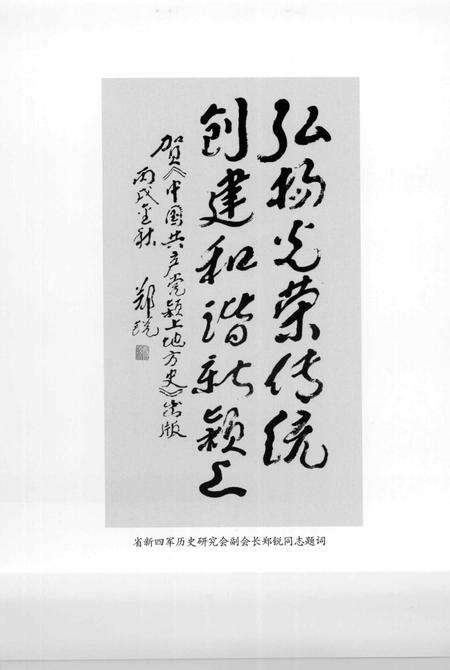 弘扬光荣传统
创建和谐新颍上
贺《中国共产党颍上地方史》出版
丙戌金秋 郑锐
省新四军历史研究会副会长郑锐同志题词